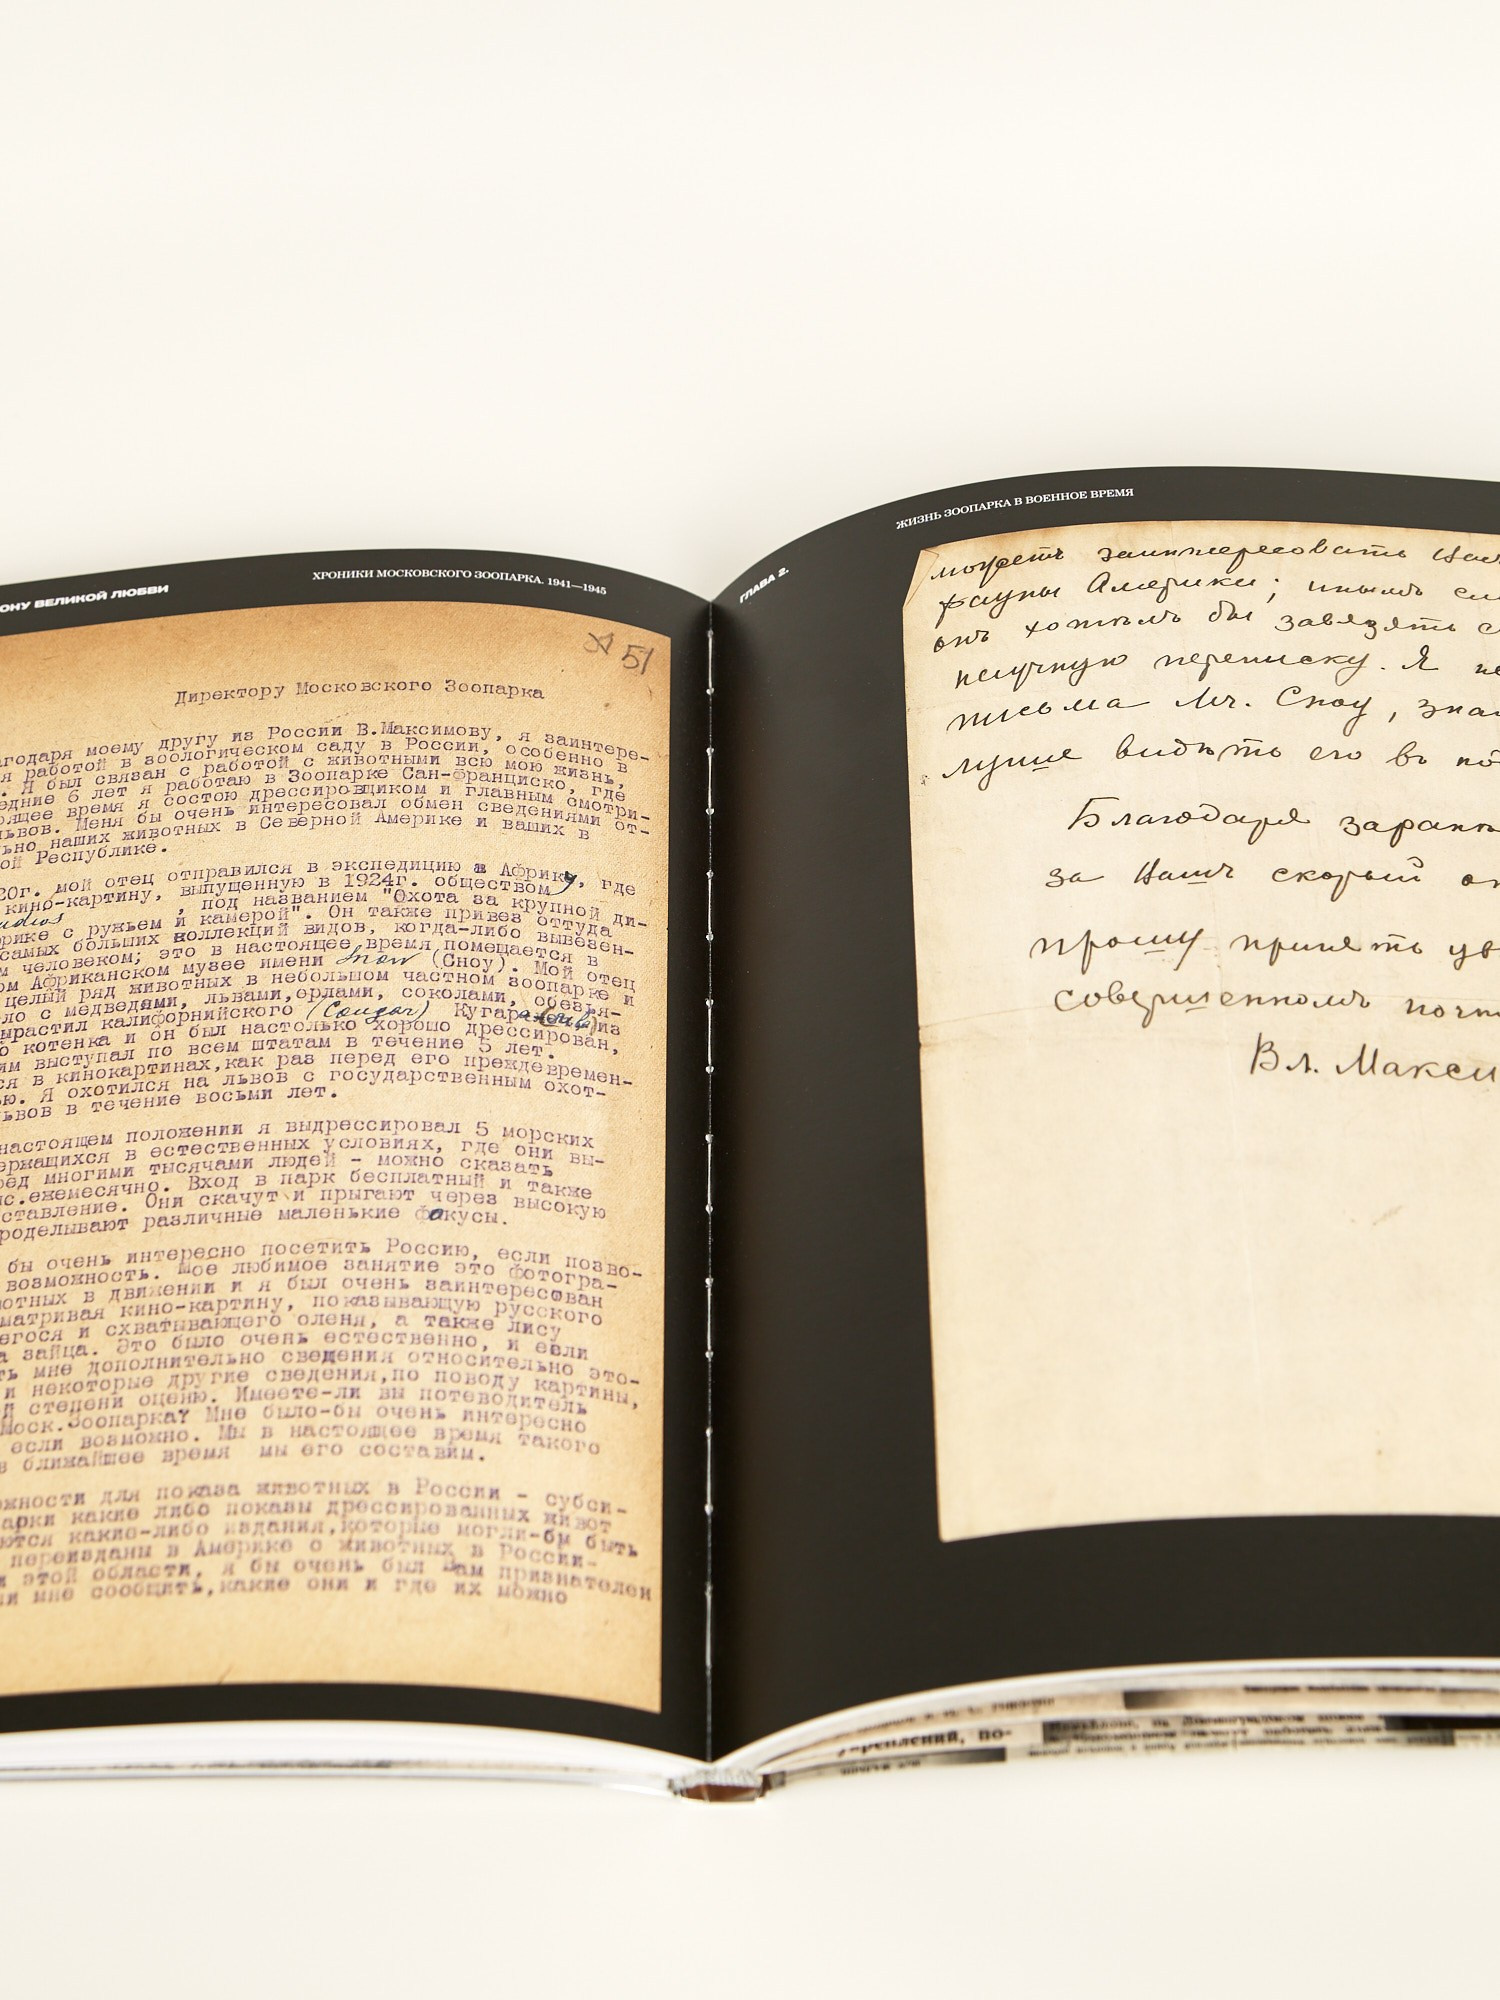 ОНУ ВЕЛИКОЙ ЛЮБВИ
ХРОНИКИ МОСКОВСКОГО ЗООПАРКА. 1941—1945
51
Директору Московского Зоопарка
агодаря моему другу из России В.Максимову, я заинтере-
я работой в зоологическом саду в России, особенно в
. Я был связан с работой с животными всю мою жизнь,
едние 6 лет я работаю в Зоопарке Сан-Франциско, где
оящее время я состою дрессировщиком и главным смотри-
львов. Меня бы очень интересовал обмен сведениями от-
льно наших животных в Северной Америке и ваших в
ой Республике.
20г. мой отец отправился в экспедицию в Африку, где
кино-картину, выпущенную в 1924г. обществом
udios , под названием "Охота за крупной ди-
фрике с ружьем и камерой". Он также привез оттуда
самых больших коллекций видов, когда-либо вывезен-
м человеком; это в настоящее время помещается в
ом Африканском музее имени Snow (Сноу). Мой отец
целый ряд животных в небольшом частном зоопарке и
ло с медведями, львами,орлами, соколами, обезья-
ырастил калифорнийского (Cougar) Кугара из
о котенка и он был настолько хорошо дрессирован,
им выступал по всем штатам в течение 5 лет.
ся в кинокартинах,как раз перед его преждевремен-
ью. Я охотился на львов с государственным охот-
львов в течение восьми лет.
настоящем положении я выдрессировал 5 морских
ержащихся в естественных условиях, где они вы-
ред многими тысячами людей - можно сказать
с.ежемесячно. Вход в парк бесплатный и также
ставление. Они скачут и прыгают через высокую
роделывают различные маленькие фокусы.
бы очень интересно посетить Россию, если позво-
возможность. Мое любимое занятие это фотогра-
отных в движении и я был очень заинтересован
матривая кино-картину, показывающую русского
егося и схватывающего оленя, а также лису
а зайца. Это было очень естественно, и если
ть мне дополнительно сведения относительно это-
и некоторые другие сведения,по поводу картины,
й степени оценю. Имеете-ли вы потеводитель
Моск.Зоопарка? Мне было-бы очень интересно
если возможно. Мы в настоящее время такого
в ближайшее время мы его составим.
жности для показа животных в России - субси-
парки какие либо показы дрессированных живот
ются какие-либо издания,которые могли-бы быть
переизданы в Америке о животных в России-
и этой области, я бы очень был Вам признателен
ли мне сообщить,какие они и где их можно
ГЛАВА 2.
ЖИЗНЬ ЗООПАРКА В ВОЕННОЕ ВРЕМЯ
можетъ заинтересовать
фауны Америки; инымъ
онъ хотѣлъ бы завязять
научную переписку. Я
письма Мч. Сноу,
лучше видѣть его въ
Благодаря
за Вашъ скорый
прошу принять
совершенномъ
Вл. Макси